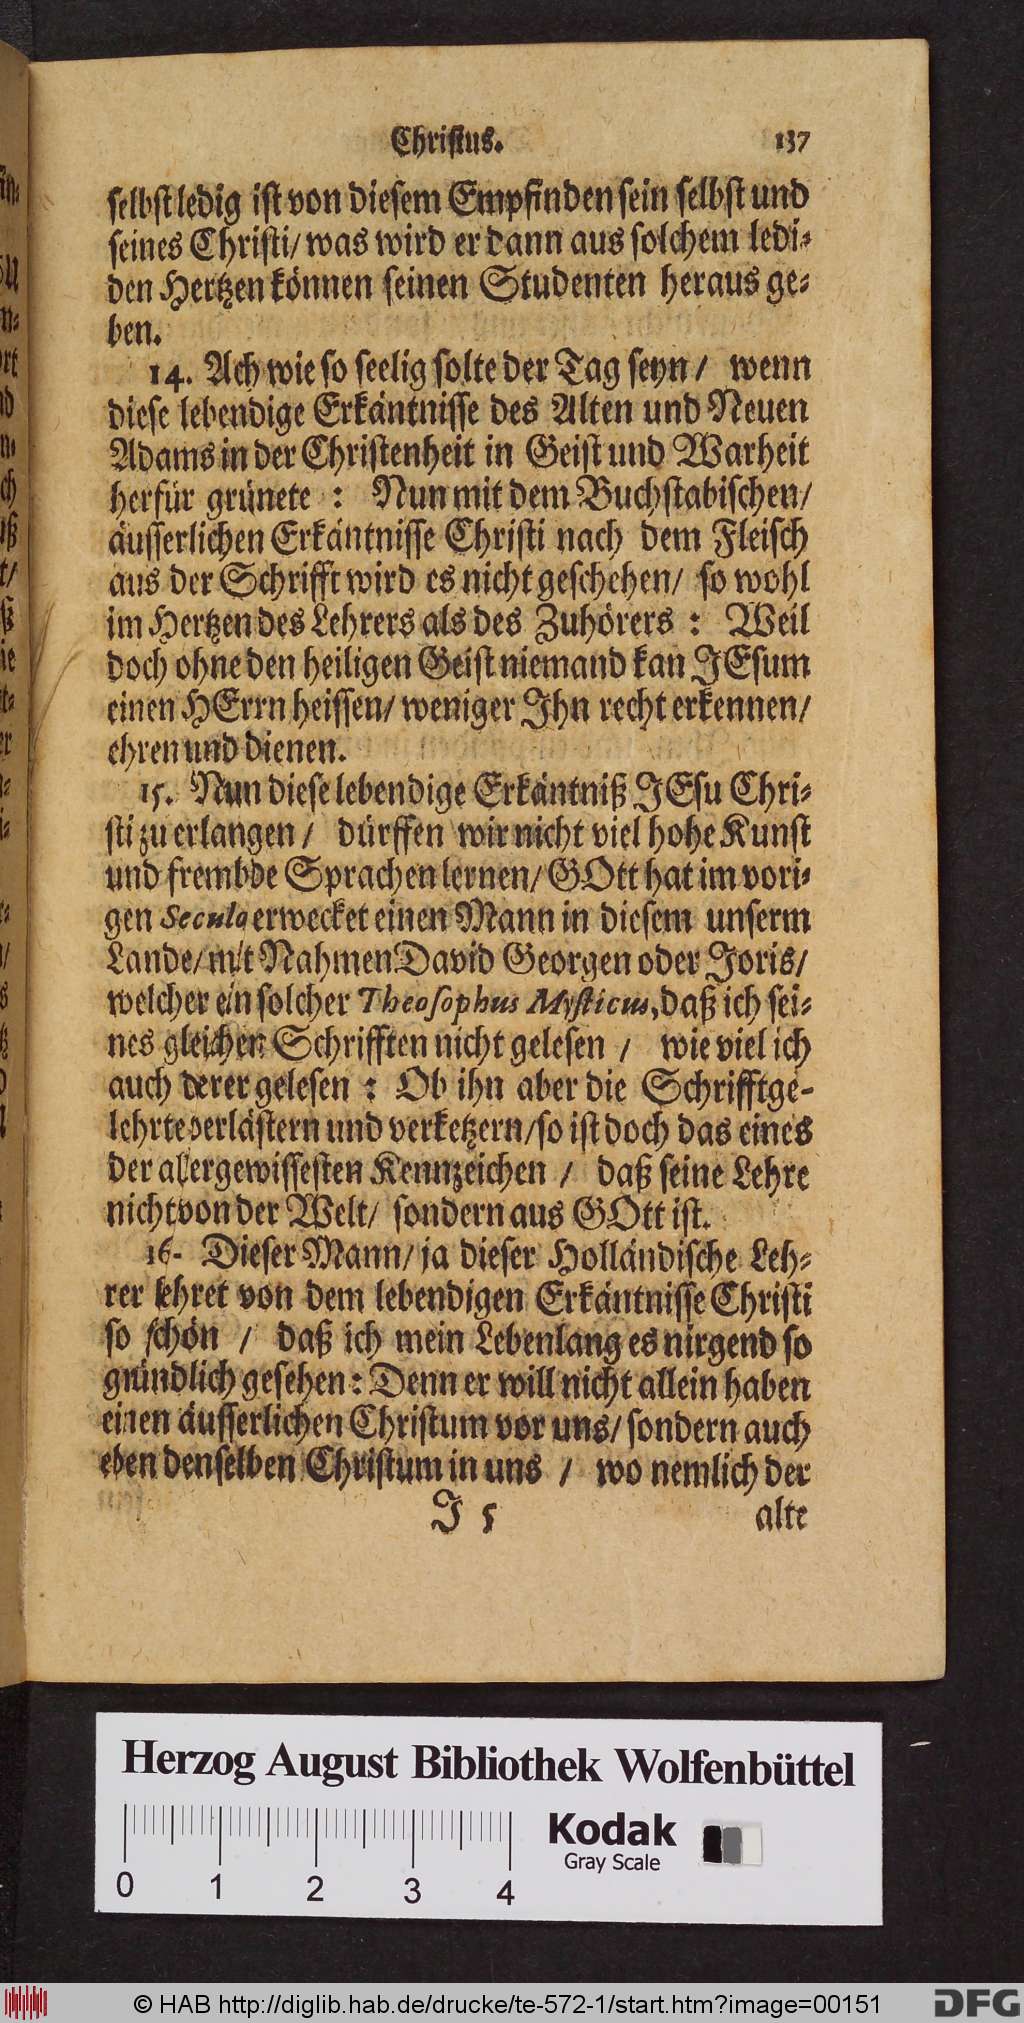 Christus. 137
selbst ledig ist von diesem Empfinden sein selbst und
seines Christi/ was wird er dann aus solchem ledi-
den Hertzen können seinen Studenten heraus ge-
ben.
14. Ach wie so seelig solte der Tag seyn/ wenn
diese lebendige Erkäntnisse des Alten und Neuen
Adams in der Christenheit in Geist und Warheit
herfür grünete : Nun mit dem Buchstabischen/
äusserlichen Erkäntnisse Christi nach dem Fleisch
aus der Schrifft wird es nicht geschehen/ so wohl
im Hertzen des Lehrers als des Zuhörers : Weil
doch ohne den heiligen Geist niemand kan JEsum
einen HErrn heissen/ weniger Jhn recht erkennen/
ehren und dienen.
15. Nun diese lebendige Erkäntniß JEsu Chri-
sti zu erlangen / dürffen wir nicht viel hohe Kunst
und frembde Sprachen lernen/ GOtt hat im vori-
gen Seculo erwecket einen Mann in diesem unserm
Lande/ mit Nahmen David Georgen oder Joris/
welcher ein solcher Theosophus Mysticus, daß ich sei-
nes gleichen Schrifften nicht gelesen / wie viel ich
auch derer gelesen : Ob ihn aber die Schrifftge-
lehrte verlästern und verketzern/ so ist doch das eines
der allergewissesten Kennzeichen / daß seine Lehre
nicht von der Welt/ sondern aus GOtt ist.
16. Dieser Mann/ ja dieser Holländische Leh-
rer lehret von dem lebendigen Erkäntnisse Christi
so schön / daß ich mein Lebenlang es nirgend so
gründlich gesehen : Denn er will nicht allein haben
einen äusserlichen Christum vor uns/ sondern auch
eben denselben Christum in uns / wo nemlich der
J 5 alte
Herzog August Bibliothek Wolfenbüttel
Kodak
Gray Scale
0 1 2 3 4
© HAB http://diglib.hab.de/drucke/te-572-1/start.htm?image=00151
DFG